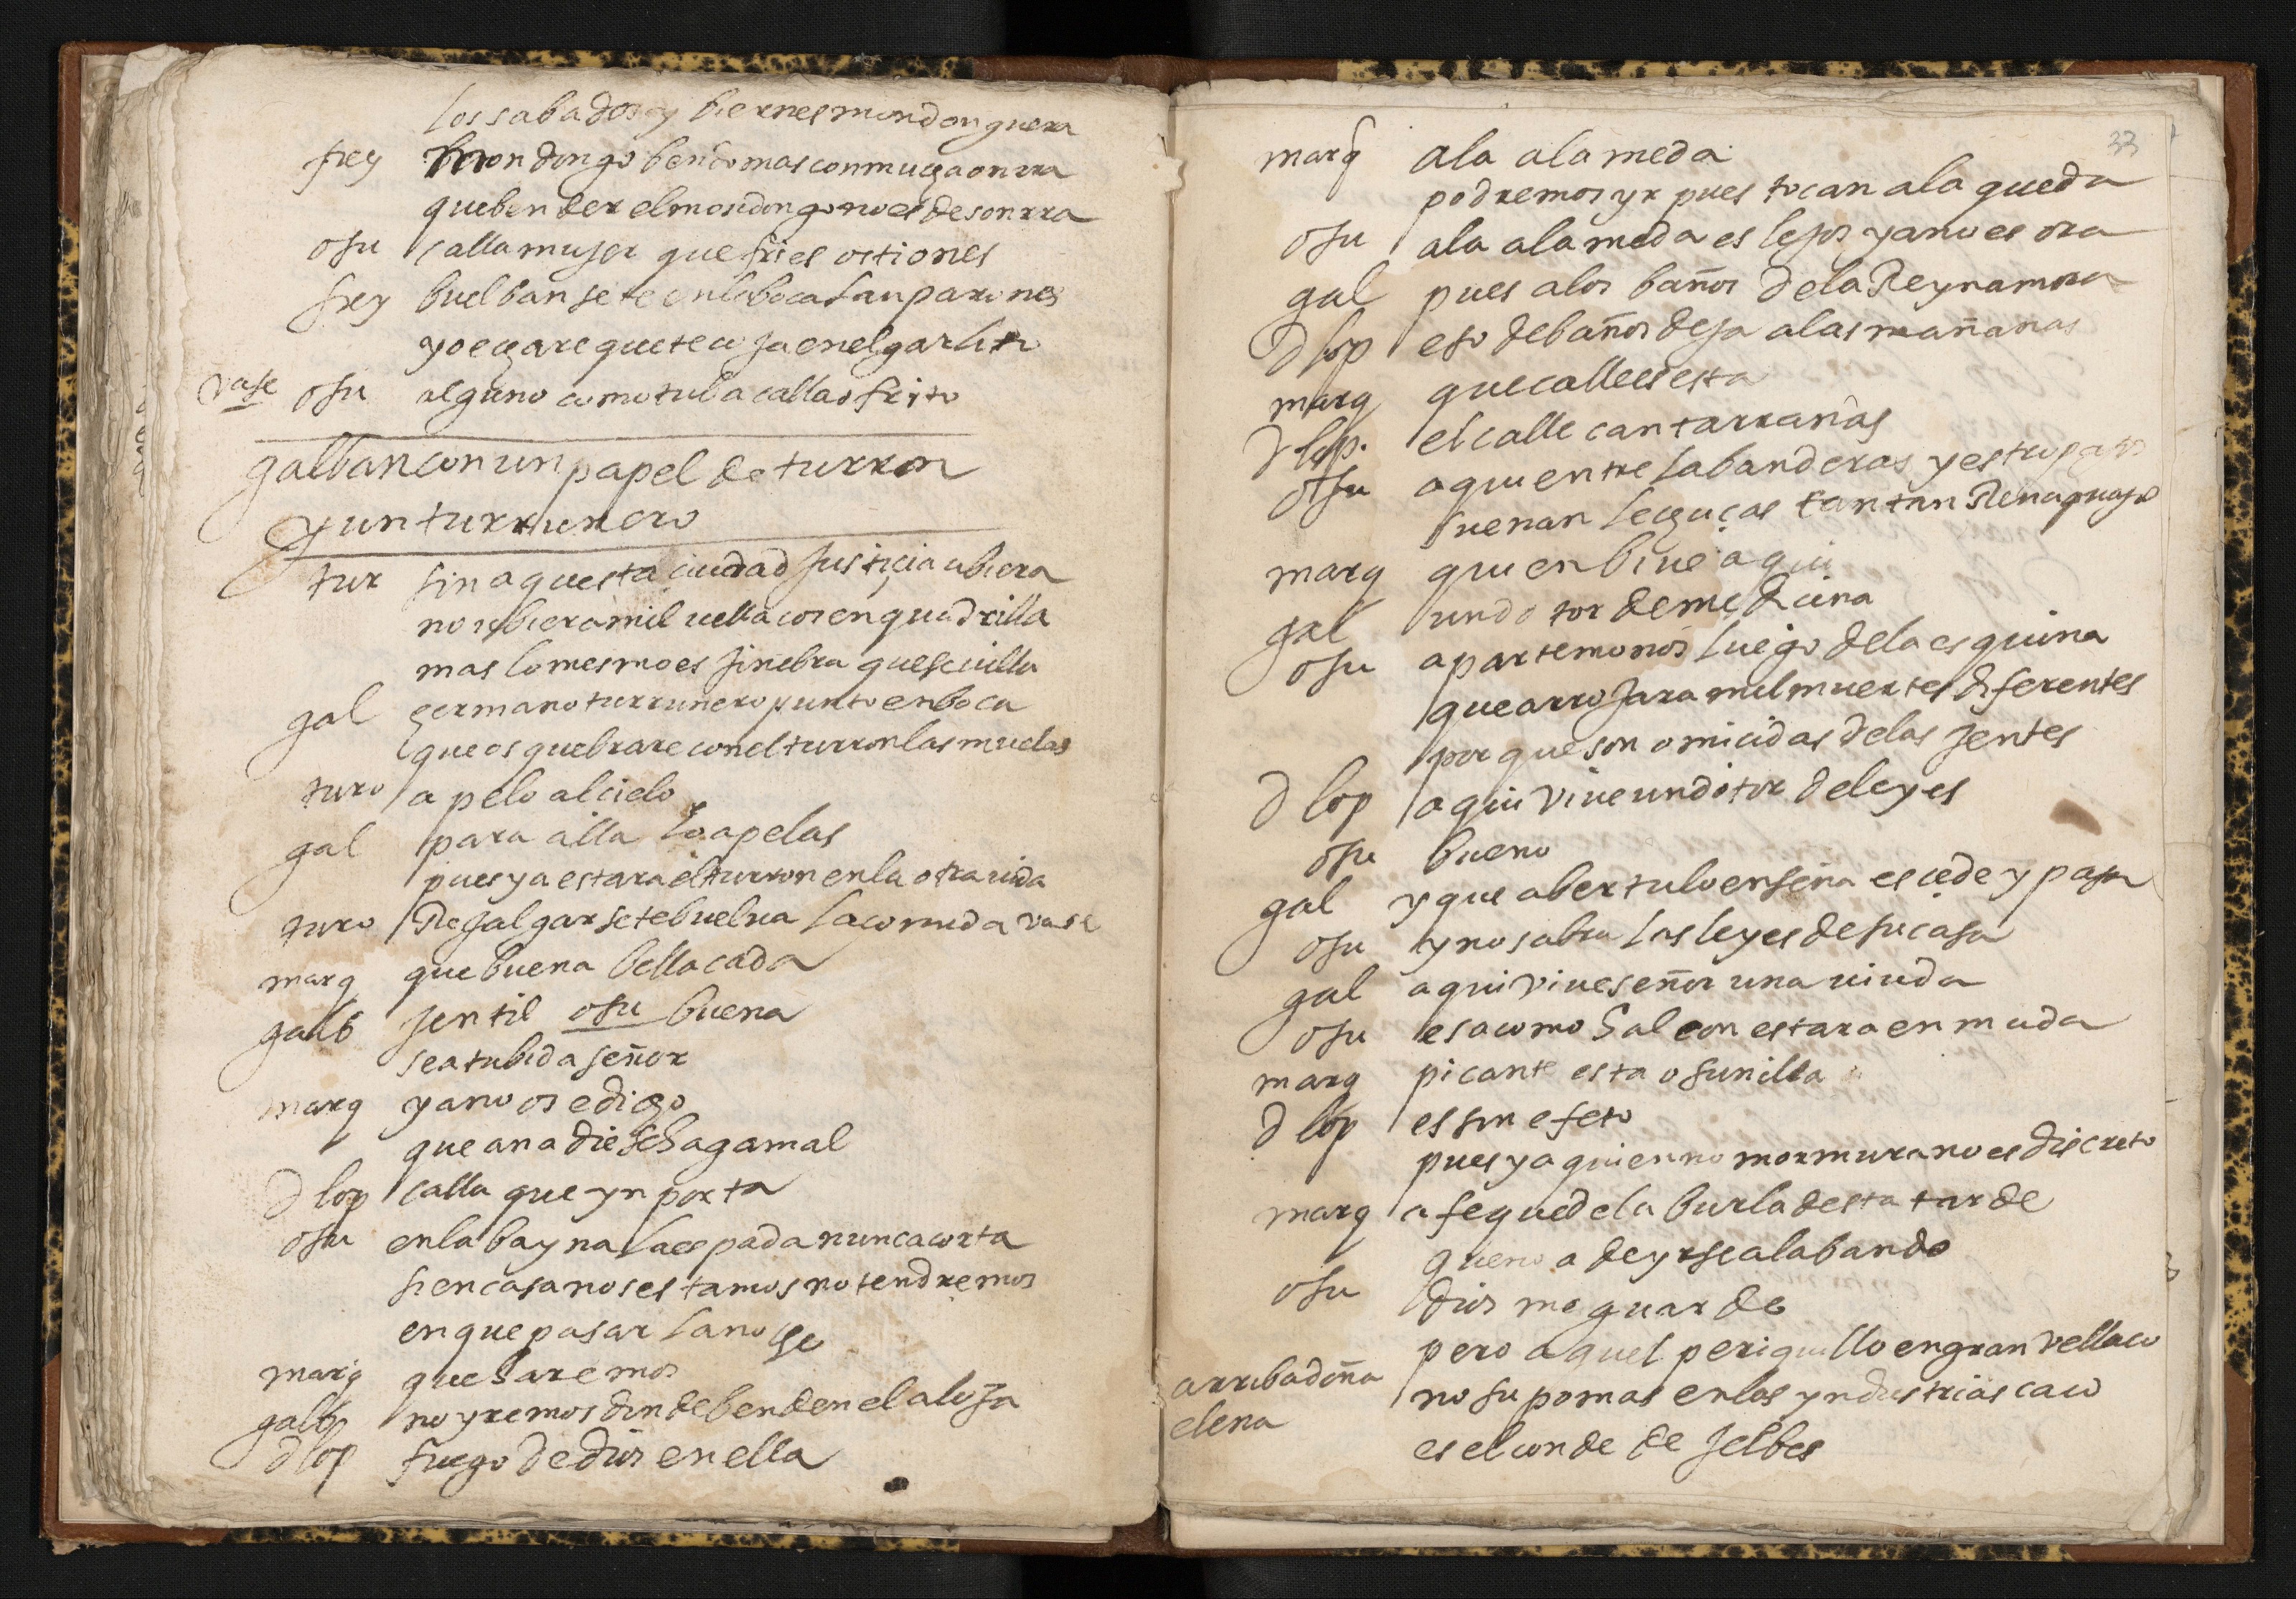 los sabados y biernes mondonguera
frey mondongo bendo mas con mucha onrra
que bender el mondongo no es desonrra
osu calla mujer que fries ostiones
frey buelban sete en la boca sanparones
yo echare que te coja en el garlito
vase osu alguno como tu bacallao frito
galban con un papel de turron
y un turrunero
tur si en aquesta ciudad justiçia ubiera
no ubiera mil vellacos en quadrilla
mas lo mesmo es jinebra que sevilla
gal hermano turrunero punto en boca
que os quebrare con el turron las muelas
turo apelo al cielo
gal para alla lo apelas
pues ya estara el turron en la otra vida
turo Rejalgar se te buelva la comida vase
marq que buena bellacada
galb jentil osu buena
sea tu bida señor
marq ya no os e dicho
que a nadie se haga mal
d lop calla que ynporta
osu en la bayna la espada nunca corta
si en casa nos estamos no tendremos
en que pasar la noche
marq que haremos
galb no yremos donde benden el aloja
d lop fuego de dios en ella
33
marq a la alameda
podremos yr pues tocan a la queda
osu a la alameda es lejos ya no es ora
gal pues a los baños de la Reyna mora
d lop eso de baños deja a las mañanas
marq que calle es esta
d lop. es calle cantarranas
osu aqui entre labanderas y estropajos
suenan lechuças cantan Renaquajos
marq quien bive aqui
gal un dotor de mediçina
osu apartemonos luego de la esquina
que arrojara mil muertes diferentes
porque son omicidas de las jentes
d lop aqui vive un dotor de leyes
osu bueno
gal y que a bertulo enseña escede y pasa
osu y no sabra las leyes de su casa
gal aqui vive señor una viuda
osu esa como halcon estara en muda
marq picante esta osunilla
d lop es sin efeto
pues ya quien no mormura no es discreto
marq a fe que de la burla desta tarde
que no a de yrse alabando
osu dios me guarde
pero aquel periquillo en gran vellaco
arriba doña elena
no supo mas en las yndustrias caco
es el conde de jelbes